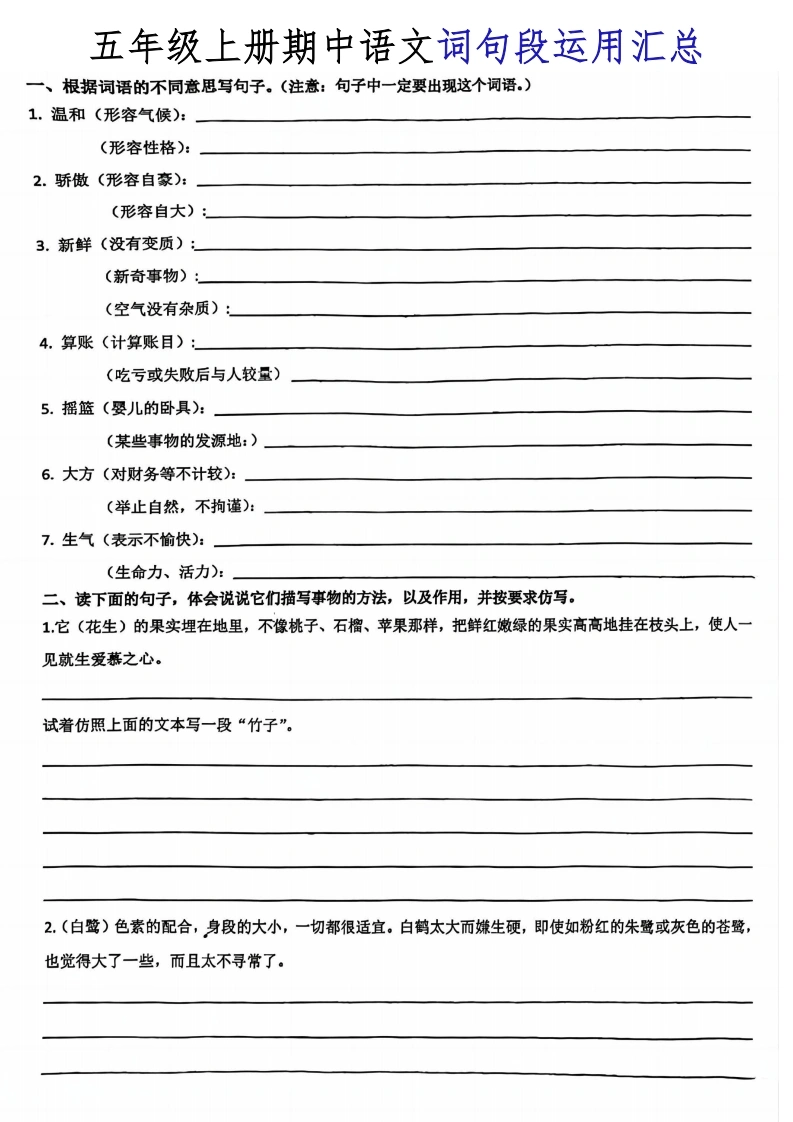 五年级上册期中语文词句段运用汇总
一、根据词语的不同意思写句子。（注意：句子中一定要出现这个词语。）
1. 温和（形容气候）：
（形容性格）：
2. 骄傲（形容自豪）：
（形容自大）:
3. 新鲜（没有变质）:
（新奇事物）:
（空气没有杂质）:
4. 算账（计算账目）:
（吃亏或失败后与人较量）
5. 摇篮（婴儿的卧具）：
（某些事物的发源地:）
6. 大方（对财务等不计较）：
（举止自然，不拘谨）：
7. 生气（表示不愉快）：
（生命力、活力）：
二、读下面的句子，体会说说它们描写事物的方法，以及作用，并按要求仿写。
1.它（花生）的果实埋在地里，不像桃子、石榴、苹果那样，把鲜红嫩绿的果实高高地挂在枝头上，使人一
见就生爱慕之心。
试着仿照上面的文本写一段“竹子”。
2.（白鹭）色素的配合，身段的大小，一切都很适宜。白鹤太大而嫌生硬，即使如粉红的朱鹭或灰色的苍鹭，
也觉得大了一些，而且太不寻常了。